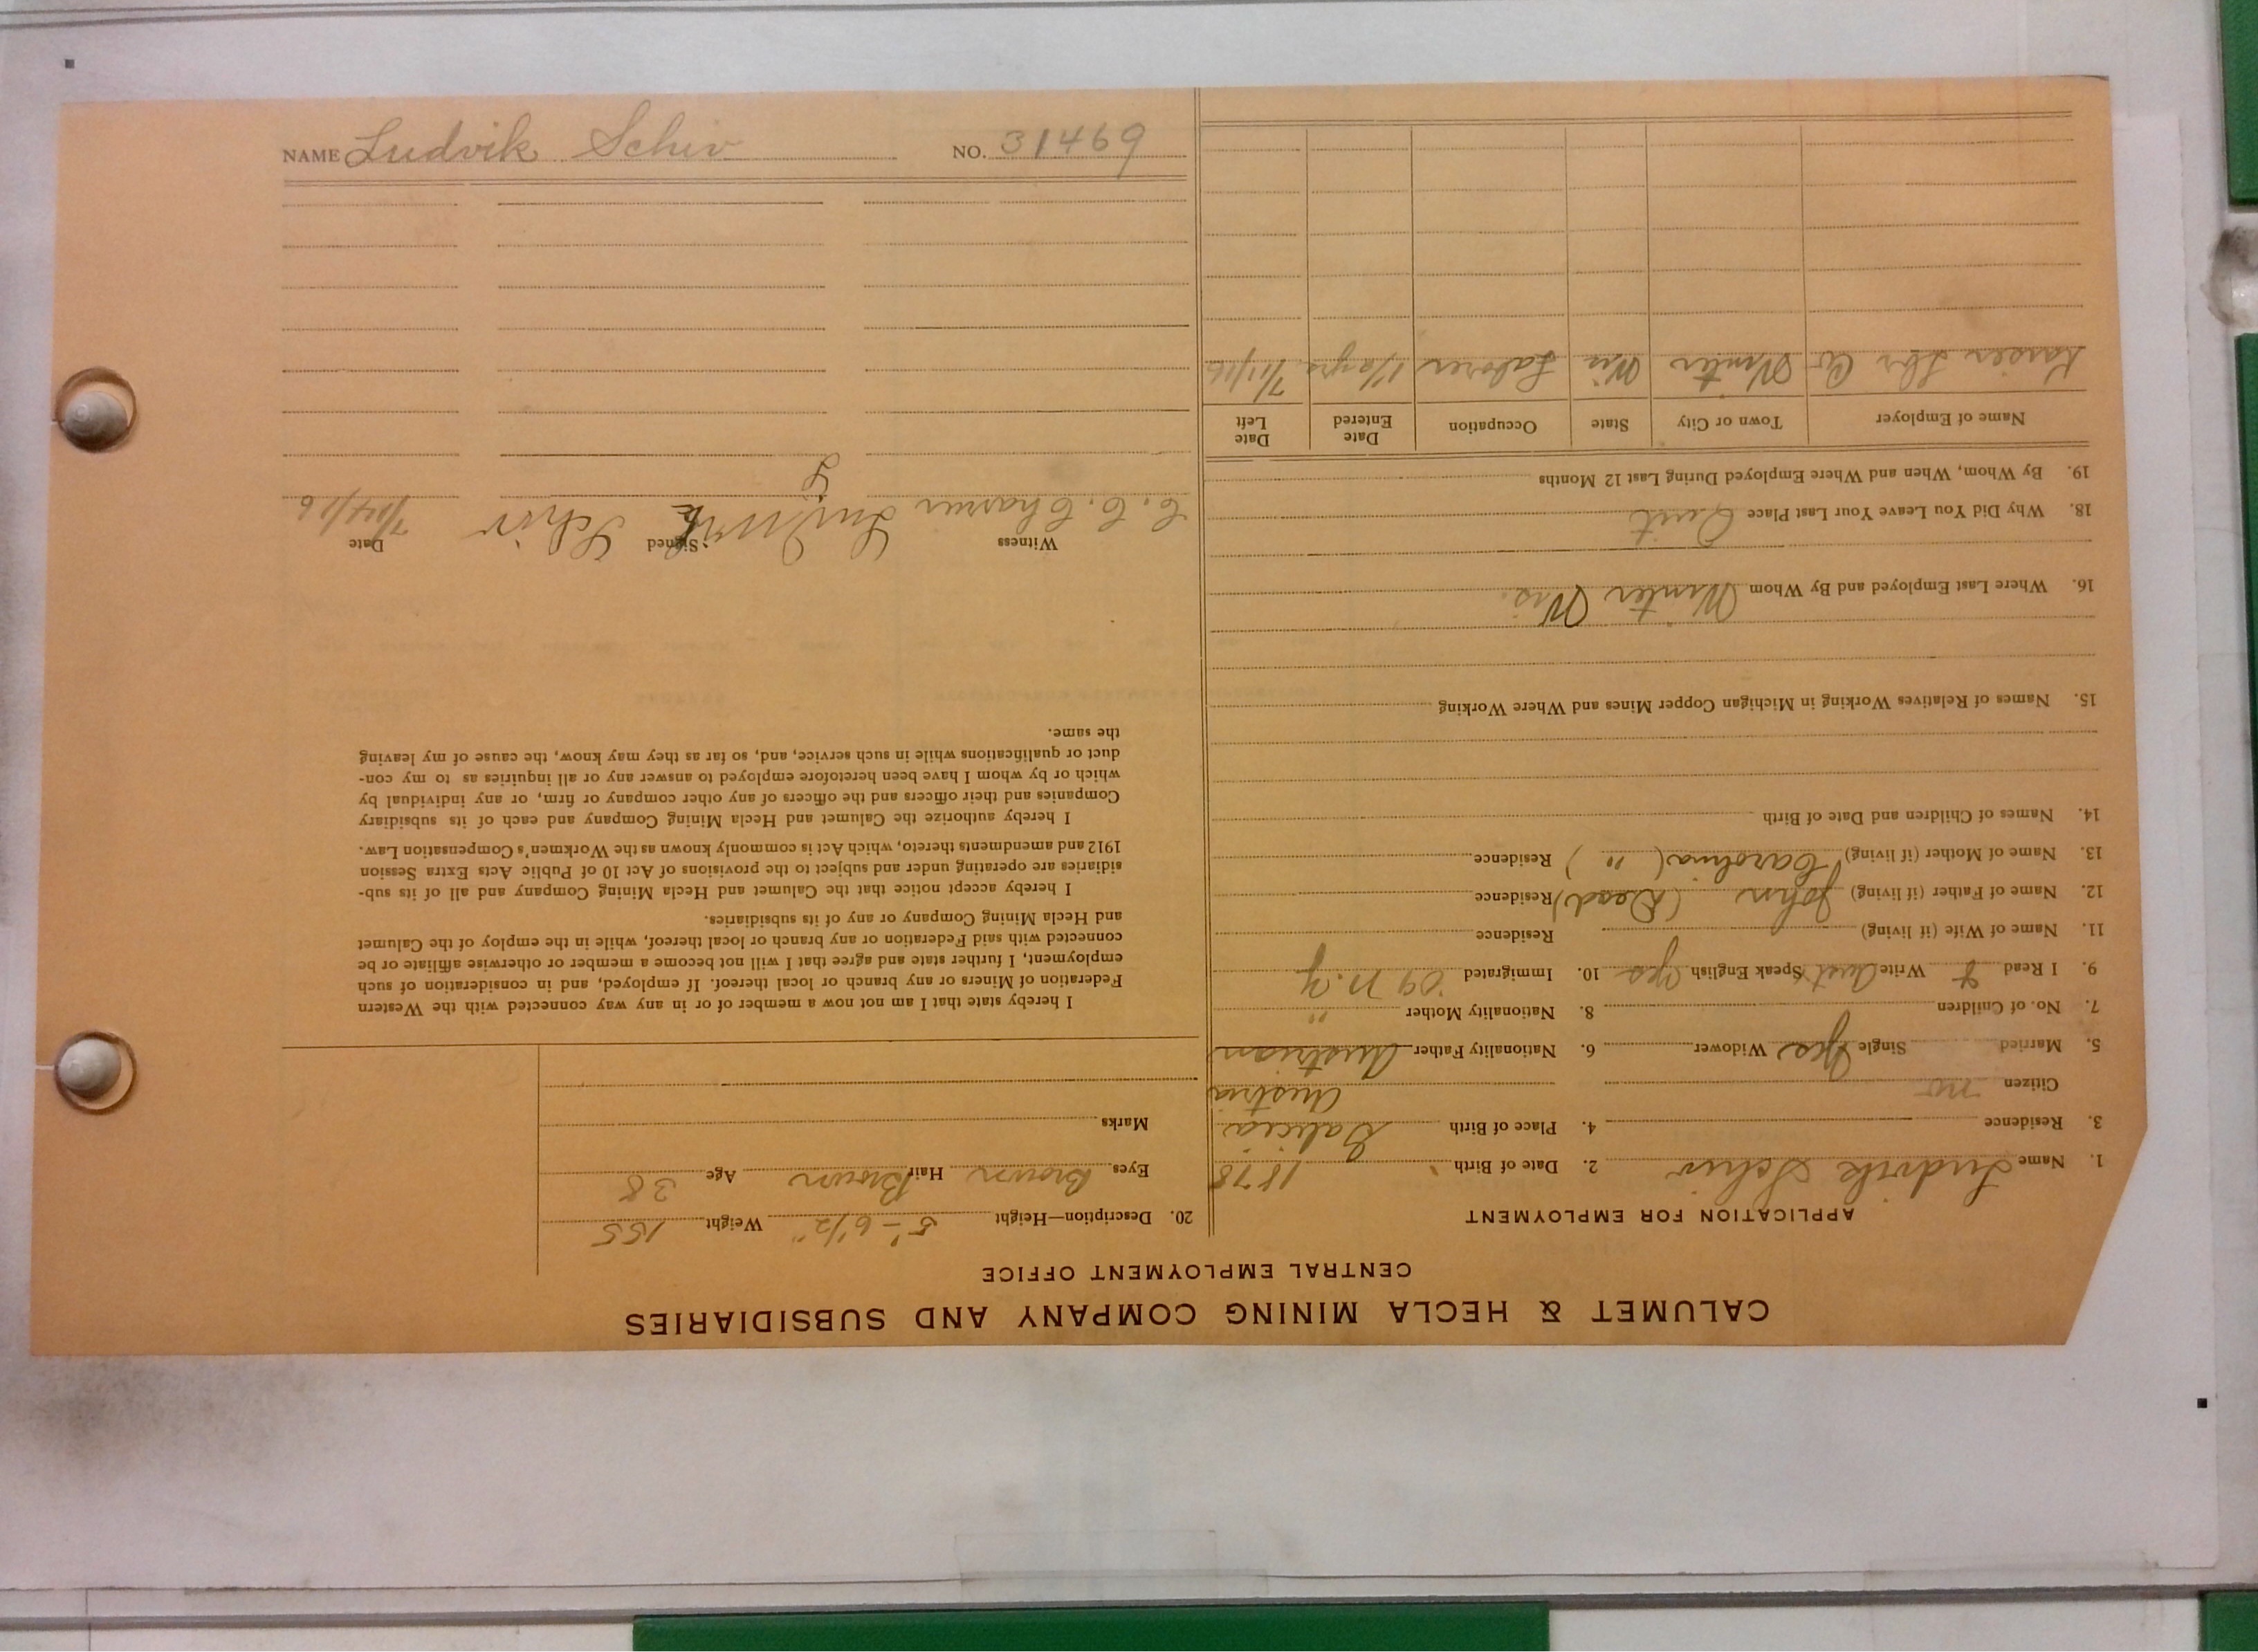 CALUMET & HECLA MINING COMPANY AND SUBSIDIARIES
CENTRAL EMPLOYMENT OFFICE
APPLICATION FOR EMPLOYMENT
1. Name Ludvik Schiv 2. Date of Birth 1878
3. Residence 4. Place of Birth Galicia
Citizen no Austria
5. Married Single Yes Widower 6. Nationality Father Austrian
7. No. of Children 8. Nationality Mother "
9. I Read & Write Aust Speak English Yes 10. Immigrated '09 N.Y
11. Name of Wife (if living) Residence
12. Name of Father (if living) John (Dead) Residence
13. Name of Mother (if living) Carolina ( " ) Residence
14. Names of Children and Date of Birth
15. Names of Relatives Working in Michigan Copper Mines and Where Working
16. Where Last Employed and By Whom Winter Wis.
18. Why Did You Leave Your Last Place Quit
19. By Whom, When and Where Employed During Last 12 Months
Name of Employer Town or City State Occupation Date Entered Date Left
Kaiser Lbr Co Winter Wis Laborer 1½ yrs 7/11/16
20. Description—Height 5'-6½" Weight 155
Eyes Brown Hair Brown Age 38
Marks
I hereby state that I am not now a member of or in any way connected with the Western
Federation of Miners or any branch or local thereof. If employed, and in consideration of such
employment, I further state and agree that I will not become a member or otherwise affiliate or be
connected with said Federation or any branch or local thereof, while in the employ of the Calumet
and Hecla Mining Company or any of its subsidiaries.
I hereby accept notice that the Calumet and Hecla Mining Company and all of its sub-
sidiaries are operating under and subject to the provisions of Act 10 of Public Acts Extra Session
1912 and amendments thereto, which Act is commonly known as the Workmen's Compensation Law.
I hereby authorize the Calumet and Hecla Mining Company and each of its subsidiary
Companies and their officers and the officers of any other company or firm, or any individual by
which or by whom I have been heretofore employed to answer any or all inquiries as to my con-
duct or qualifications while in such service, and, so far as they may know, the cause of my leaving
the same.
Witness Signed Date
C. C. Schiv 7/14/16
NAME Ludvik Schiv NO. 31469